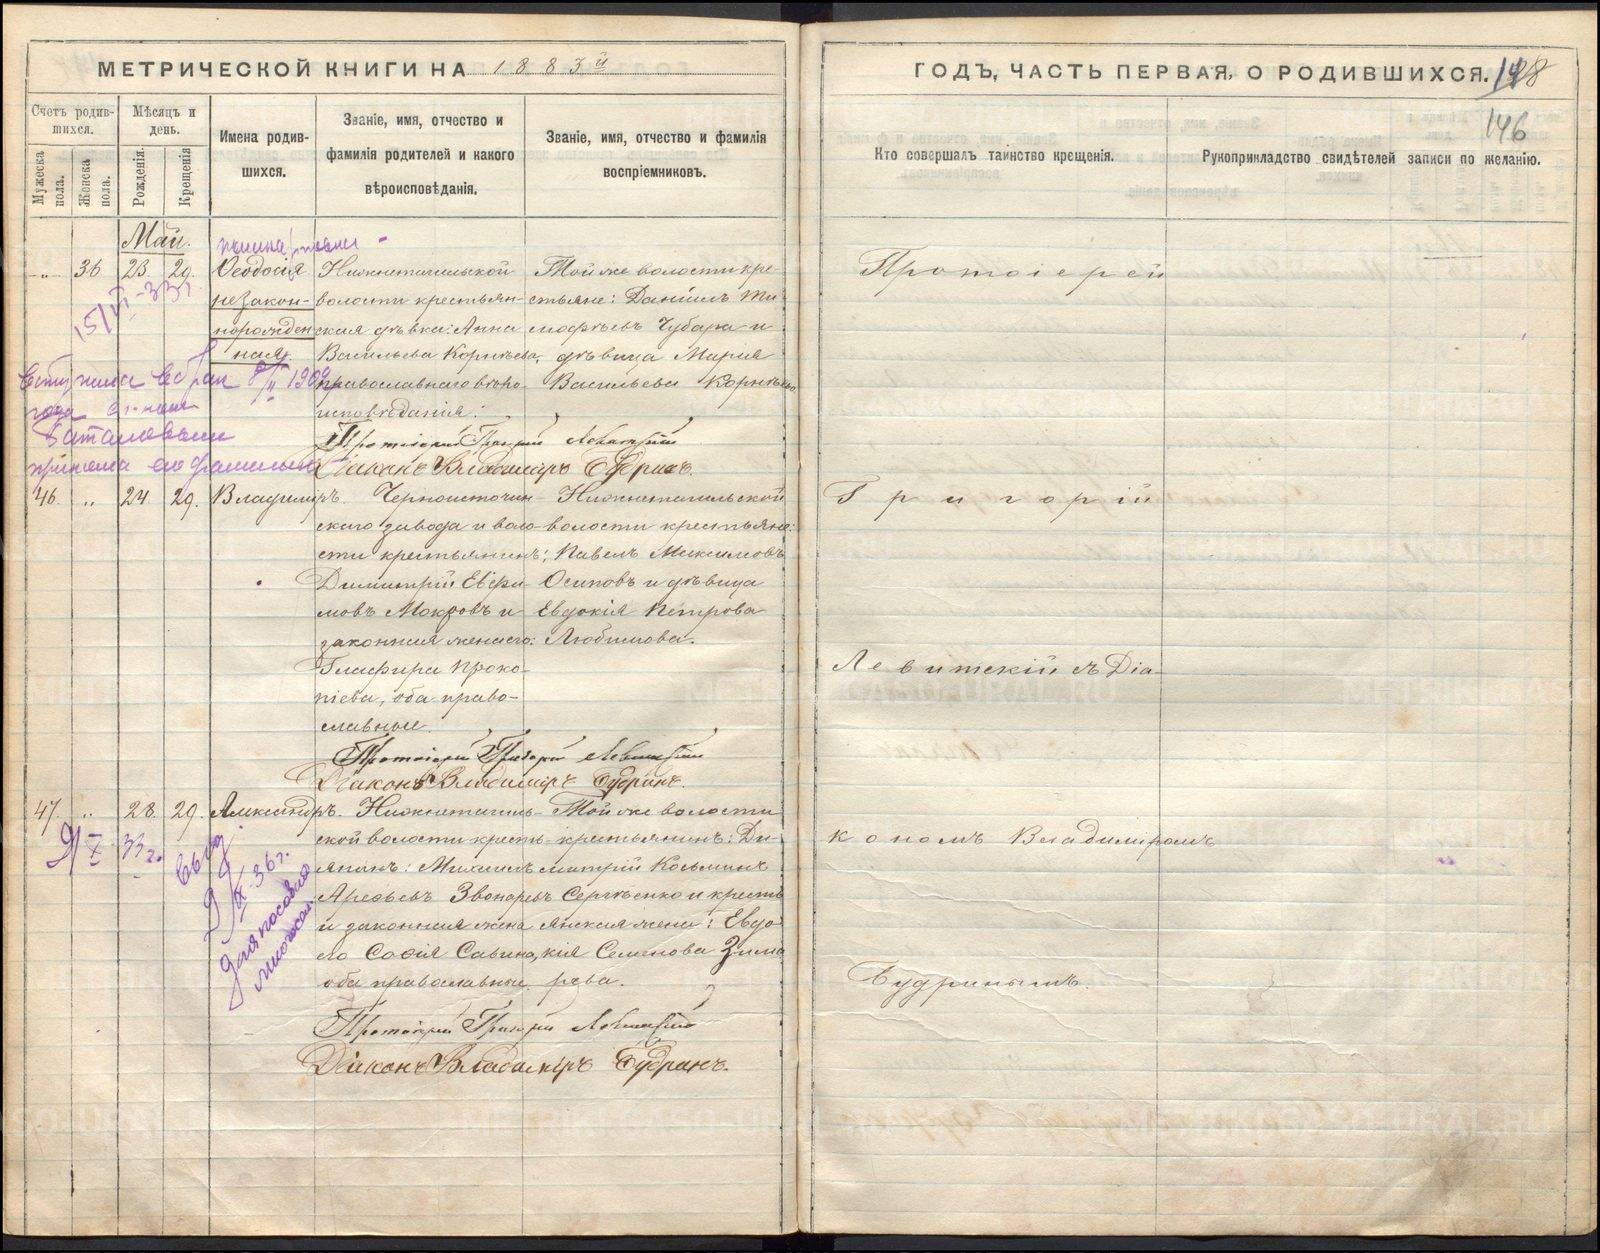 МЕТРИЧЕСКОЙ КНИГИ НА 1883й
ГОДЪ, ЧАСТЬ ПЕРВАЯ, О РОДИВШИХСЯ.
146
Счетъ родив-
шихся.
Мужеска пола.
Женска пола.
Мѣсяцъ и
день.
Рожденія.
Крещенія
Имена родив-
шихся.
Званіе, имя, отчество и
фамилія родителей и какого
вѣроисповѣданія.
Званіе, имя, отчество и фамилія
воспріемниковъ.
Кто совершалъ таинство крещенія.
Рукоприкладство свидѣтелей записи по желанію.
Май.
„ 36 23. 29.
Ѳеодосія
незакон-
норожден
ная.
15/VI-33 г.
Нижнетагильской
волости крестьян-
ская дѣвка: Анна
Васильева Корнѣева,
православнаго вѣро-
исповѣданія.
Тойже волости кре-
стьяне: Даніилъ Ти-
мофѣевъ Чубара и
дѣвица Марія
Васильева Корнѣева
Вступила в брак 1909
года
Баталовым
приняла его фамилию
Протоіерей Григорій Левитскій
Діаконъ Владиміръ Будринъ.
46. „ 24. 29. Владиміръ.
Черноисточин-
скаго завода и воло-
сти крестьянинъ:
Димитрій Евфи-
мовъ Мокровъ и
законная жена его:
Глафира Проко-
піева, оба право-
славные.
Нижнетагильской
волости крестьяне:
Павелъ Максимовъ
Осиповъ и дѣвица
Евдокія Петрова
Любимова.
Протоіерей Григорій Левитскій
Діаконъ Владиміръ Будринъ.
47. „ 28. 29. Александръ.
9/X 33 г.
IX-36 г.
для пособия
многосем.
Нижнетагиль-
ской волости кресть-
янинъ: Михаилъ
Арефьевъ Звонаревъ
и законная жена
его Софія Савина,
оба православные.
Тойже волости
крестьянинъ: Ди-
митрій Козьминъ
Сергѣенко и кресть
янская жена: Евдо-
кія Семенова Зима-
рева.
Протоіерей Григорій Левитскій
Діаконъ Владиміръ Будринъ.
Протоіерей
Григорій
Левитскій съ Діа-
кономъ Владиміромъ
Будринымъ.